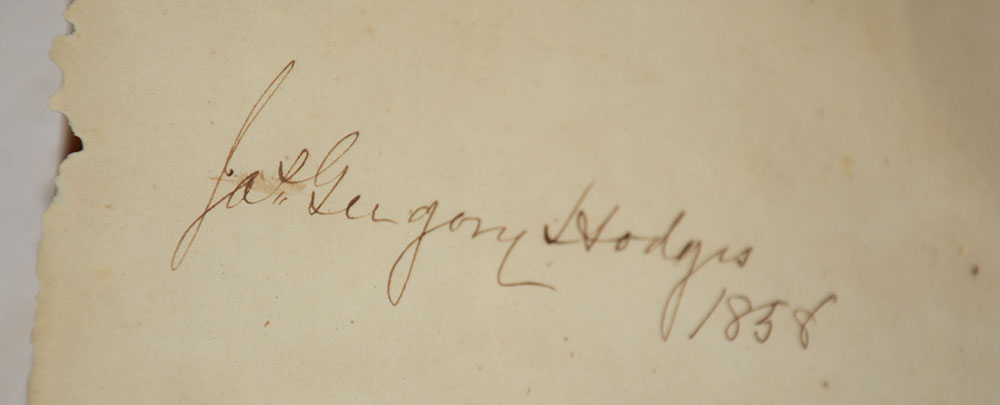 Jas Gregory Hodges
1858